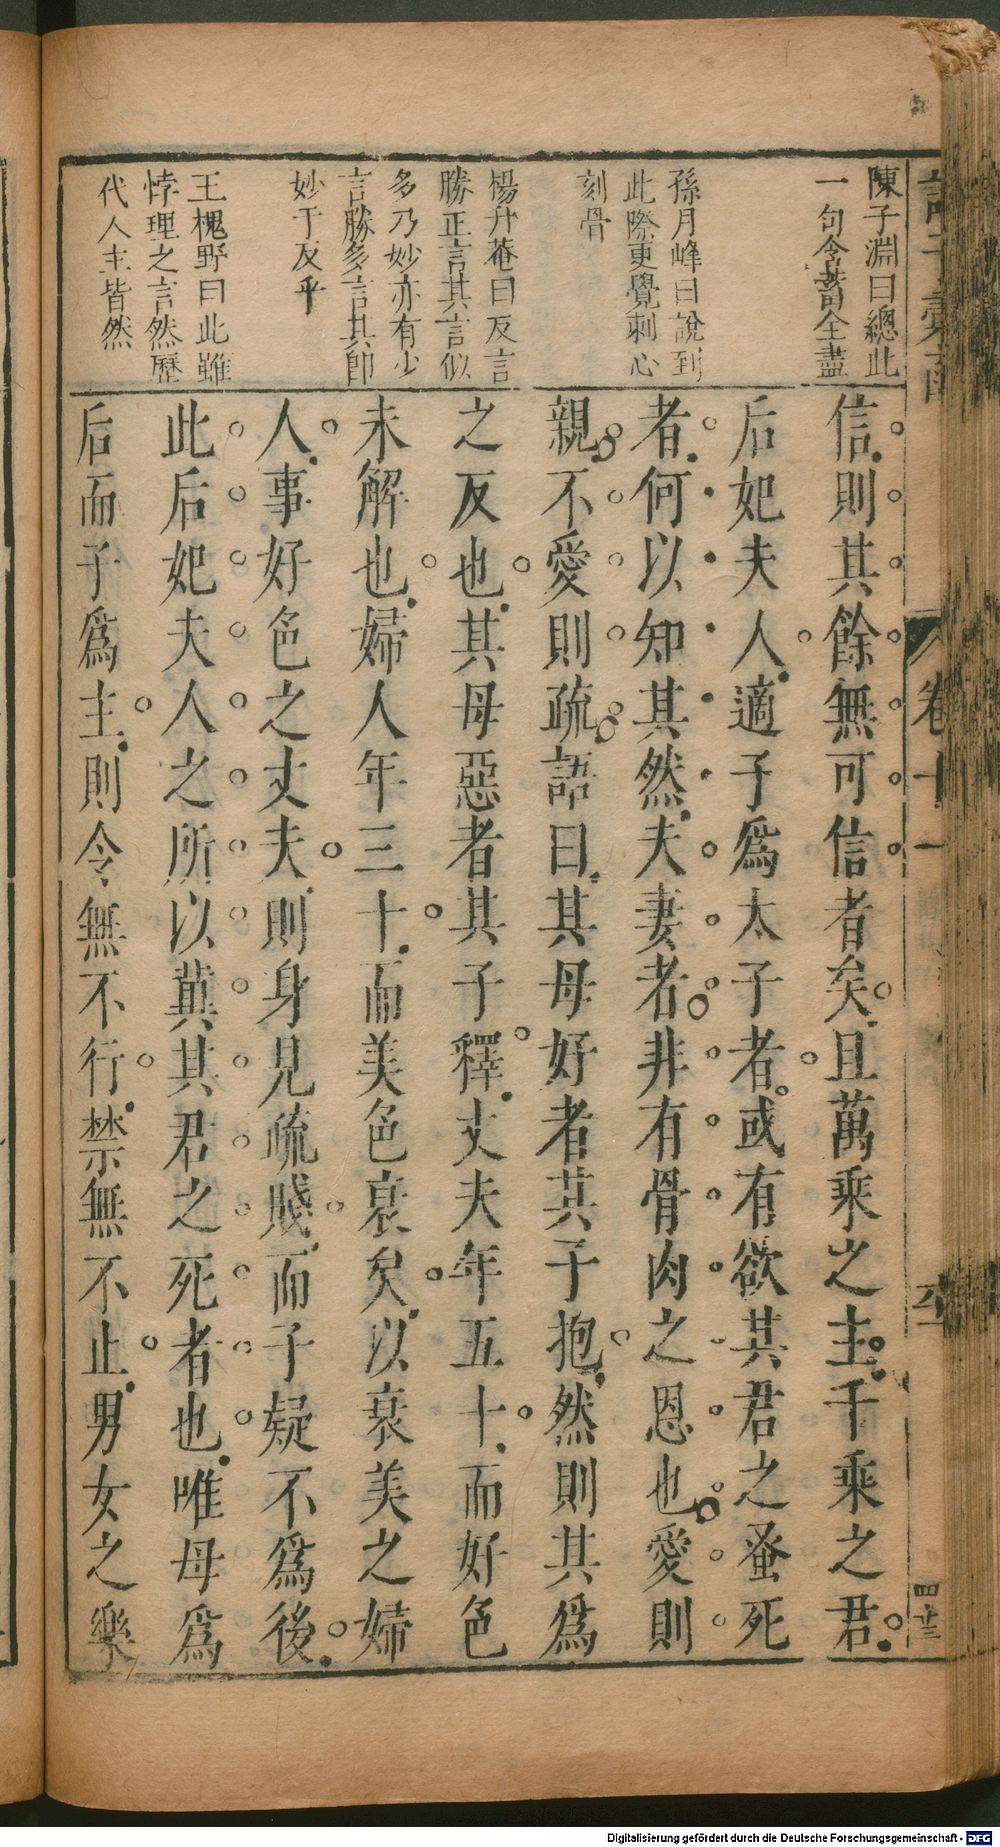 陳子淵曰總此
一句令昔全盡
孫月峰曰說到
此際更覺刺心
刻骨
楊升菴曰反言
勝正言其言似
多乃妙亦有少
言勝多言其卽
妙于反乎
王槐野曰此雖
悖理之言然歷
代人主皆然
信則其餘無可信者矣且萬乘之主千乘之君
后妃夫人適子爲太子者或有欲其君之蚤死
者何以知其然夫妻者非有骨肉之恩也愛則
親不愛則疏語曰其母好者其子抱然則其爲
之反也其母惡者其子釋丈夫年五十而好色
未解也婦人年三十而美色衰矣以衰美之婦
人事好色之丈夫則身見疏賤而子疑不爲後
此后妃夫人之所以冀其君之死者也唯母爲
后而子爲主則令無不行禁無不止男女之樂
卷十一
四十三
Digitalisierung gefördert durch die Deutsche Forschungsgemeinschaft - DFG